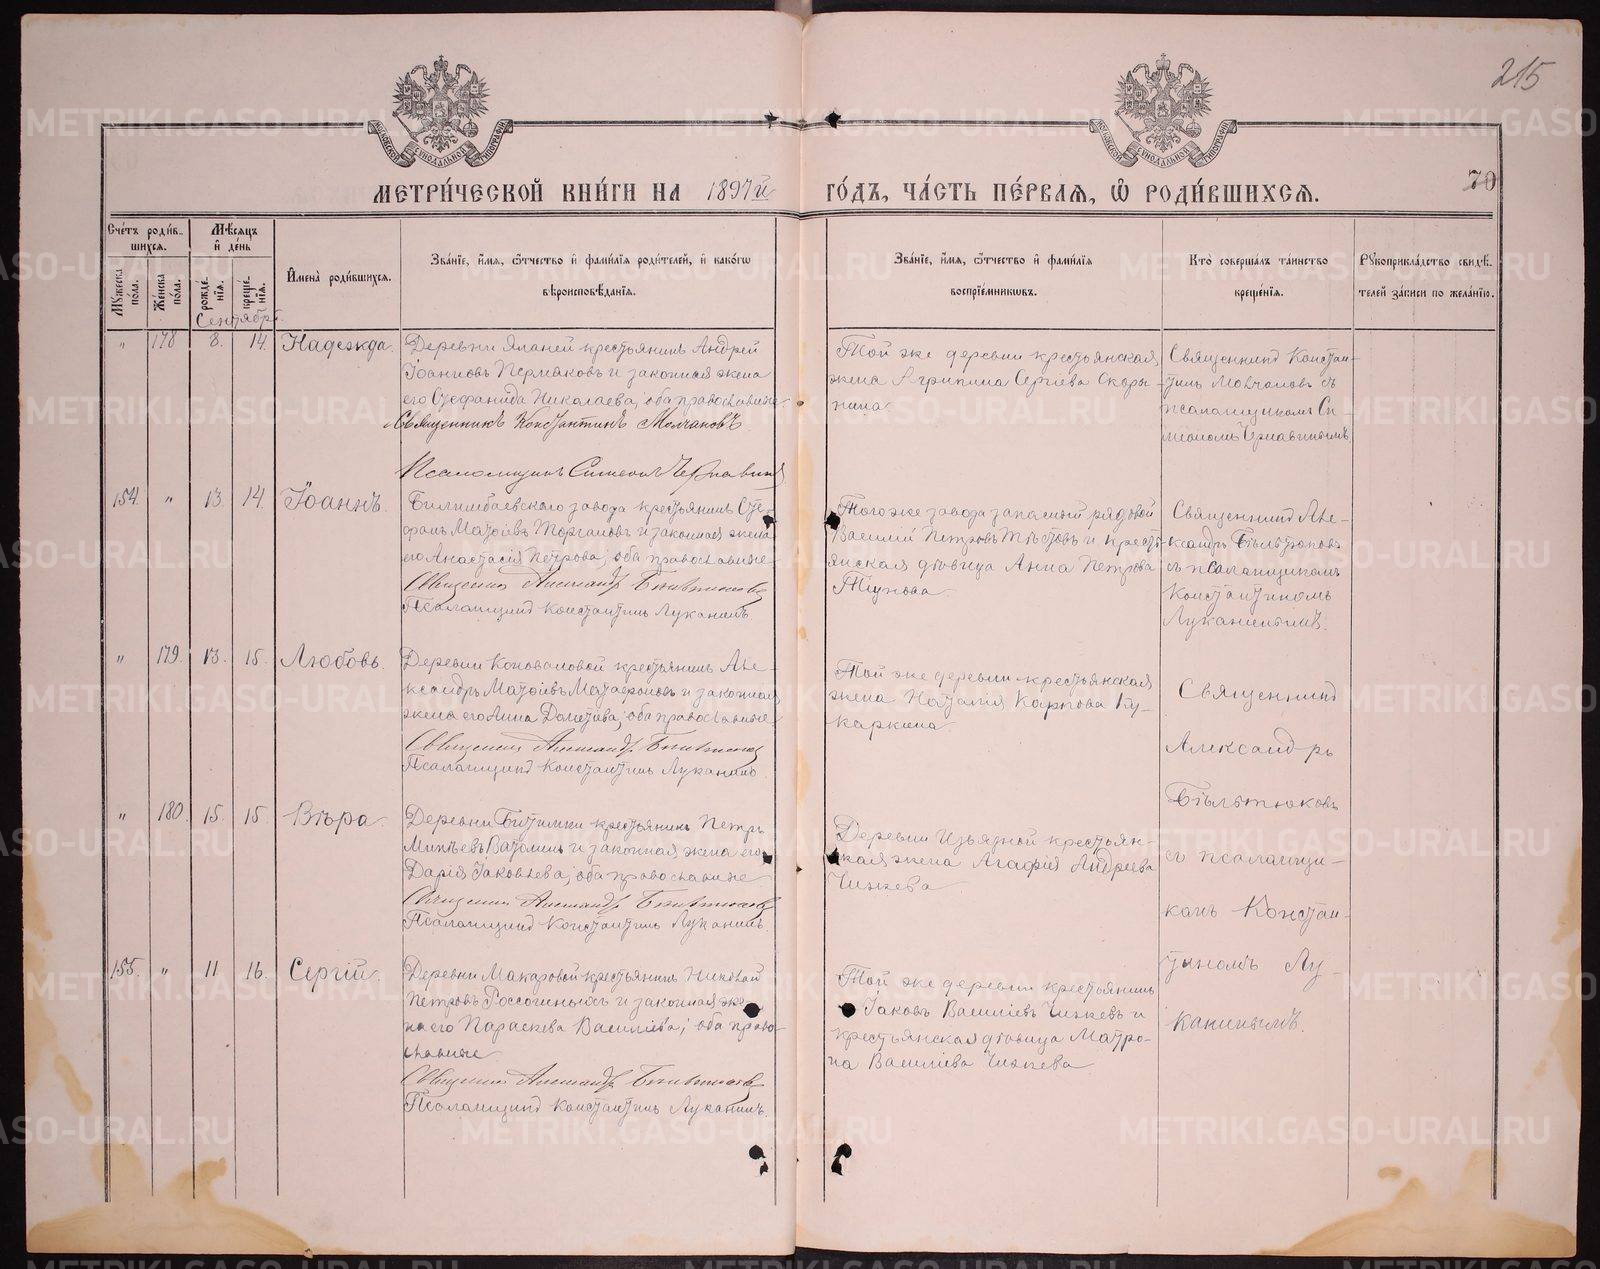 215
МЕТРИ́ЧЕСКОЙ КНИ́ГИ НА 1897й ГО́ДЪ, ЧА́СТЬ ПЕ́РВАѦ, Ѡ҆ РОДИ́ВШИХСѦ.
70
Сче́тъ роди́вшихсѧ.
Мѣ́сѧцъ и҆ де́нь
Мꙋ́жеска по́ла.
Же́нска по́ла.
рожде́нїѧ.
креще́нїѧ.
И҆мена̀ роди́вшихсѧ.
Зва́нїе, и҆́мѧ, ѻ҆́тчество и҆ фами́лїѧ роди́телей, и҆ како́гѡ
вѣроисповѣ́данїѧ.
Зва́нїе, и҆́мѧ, ѻ҆́тчество и҆ фами́лїѧ
воспрїе́мникѡвъ.
Кто̀ соверша́лъ та́инство
креще́нїѧ.
Рꙋкоприкла́дство свидѣ́телей за́писи по жела́нїю.
Сентября
" 178 8. 14. Надежда.
Деревни Яланей крестьянинъ Андрей
Іоанновъ Пермяковъ и законная жена
его Стефанида Николаева, оба православные
Священникъ Константинъ Молчановъ
Псаломщикъ Симеонъ Чернавинъ
Той же деревни крестьянская
жена Агрипина Сергіева Скоры-
нина
Священникъ Констан-
тинъ Молчановъ съ
псаломщикомъ Си-
меономъ Чернавинымъ
154. " 13. 14. Іоаннъ.
Билимбаевскаго завода крестьянинъ Сте-
фанъ Матѳіевъ Торгановъ и законная жена
его Анастасія Петрова, оба православные
Священникъ Александръ Бѣльтюковъ
Псаломщикъ Константинъ Луканинъ
Того же завода запасный рядовой
Василій Петровъ Тѣстовъ и кресть-
янская дѣвица Анна Петрова
Тіунова
Священникъ Але-
ксандръ Бѣльтюковъ
съ псаломщикомъ
Константиномъ
Луканинымъ.
" 179. 13. 15. Любовь.
Деревни Коноваловой крестьянинъ Але-
ксандръ Матѳіевъ Матафоновъ и законная
жена его Анна Дометіева, оба православные
Священникъ Александръ Бѣльтюковъ
Псаломщикъ Константинъ Луканинъ.
Той же деревни крестьянская
жена Наталія Карпова Ку-
каркина
Священникъ
Александръ
Бѣльтюковъ
съ псаломщи-
комъ Констан-
тиномъ Лу-
канинымъ.
" 180. 15. 15. Вѣра
Деревни Битимки крестьянинъ Петръ
Михѣевъ Ватолинъ и законная жена его
Дарія Іаковлева, оба православные
Священникъ Александръ Бѣльтюковъ
Псаломщикъ Константинъ Луканинъ.
Деревни Извязной крестьян-
ская жена Агафія Андреева
Чижева
155. " 11 16. Сергій.
Деревни Макаровой крестьянинъ Николай
Петровъ Россогиныхъ и законная же-
на его Параскева Василіева; оба право-
славные
Священникъ Александръ Бѣльтюковъ
Псаломщикъ Константинъ Луканинъ.
Той же деревни крестьянинъ
Іаковъ Василіевъ Чижевъ и
крестьянская дѣвица Матро-
на Василіева Чижева
METRIKI.GASO-URAL.RU